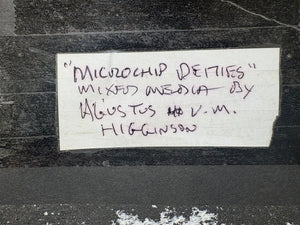 "MICROCHIP DEITIES"
MIXED MEDIA BY
AGUSTUS V.M.
HIGGINSON